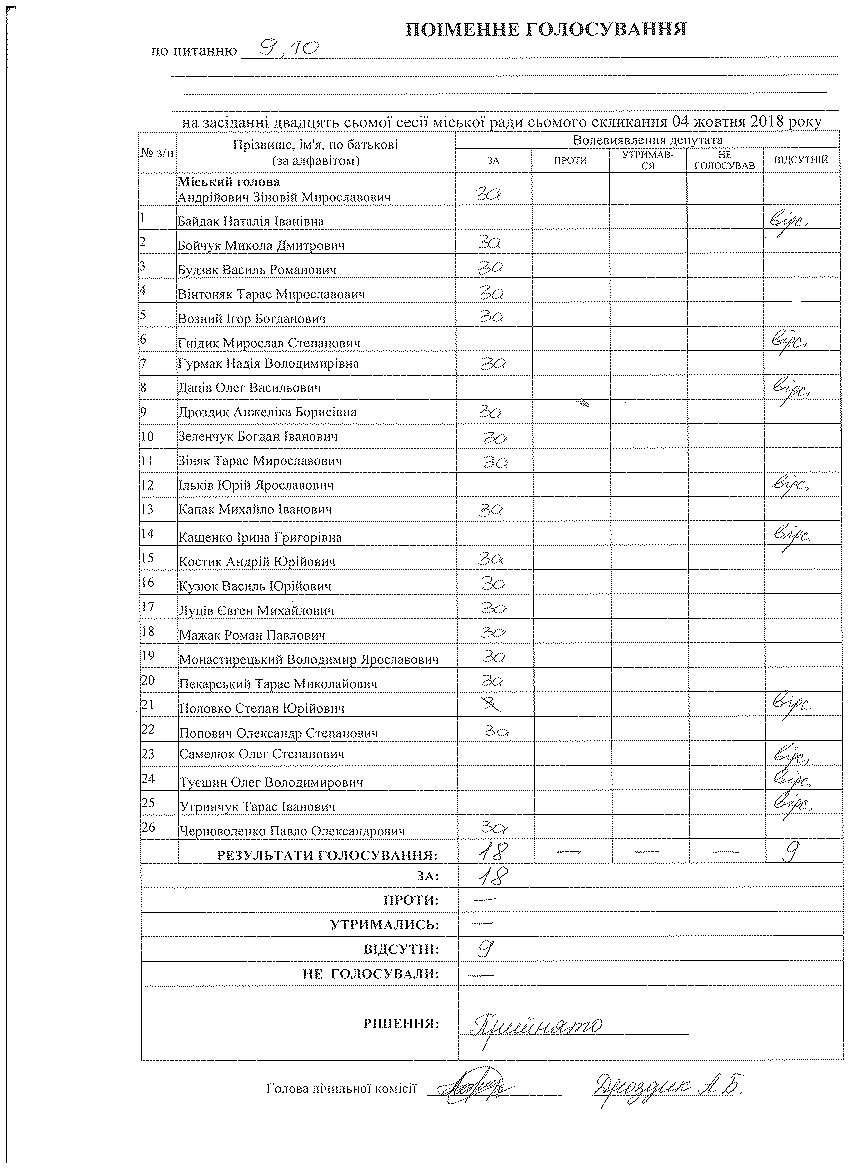 ПОІМЕННЕ ГОЛОСУВАННЯ
по питанню 9,10
на засіданні двадцять сьомої сесії міської ради сьомого скликання 04 жовтня 2018 року
№ з/п Прізвище, ім'я, по батькові (за алфавітом) Волевиявлення депутата
ЗА ПРОТИ УТРИМАВ-СЯ НЕ ГОЛОСУВАВ ВІДСУТНІЙ
Міський голова
Андрійович Зіновій Мирославович за
1 Байдак Наталія Іванівна відс.
2 Бойчук Микола Дмитрович за
3 Будзяк Василь Романович за
4 Вінтоняк Тарас Мирославович за
5 Возний Ігор Богданович за
6 Гнідик Мирослав Степанович відс.
7 Гурмак Надія Володимирівна за
8 Даців Олег Васильович відс.
9 Дроздик Анжеліка Борисівна за
10 Зеленчук Богдан Іванович за
11 Зіняк Тарас Мирославович за
12 Ільків Юрій Ярославович відс.
13 Капак Михайло Іванович за
14 Кащенко Ірина Григорівна відс.
15 Костик Андрій Юрійович за
16 Кузюк Василь Юрійович за
17 Луців Євген Михайлович за
18 Мажак Роман Павлович за
19 Монастирецький Володимир Ярославович за
20 Пекарський Тарас Миколайович за
21 Половко Степан Юрійович відс.
22 Попович Олександр Степанович за
23 Самелюк Олег Степанович відс.
24 Туєшин Олег Володимирович відс.
25 Угринчук Тарас Іванович відс.
26 Черноволенко Павло Олександрович за
РЕЗУЛЬТАТИ ГОЛОСУВАННЯ: 18 — — — 9
ЗА: 18
ПРОТИ: —
УТРИМАЛИСЬ: —
ВІДСУТНІ: 9
НЕ ГОЛОСУВАЛИ: —
РІШЕННЯ: Прийнято
Голова лічильної комісії Дроздик А.Б.